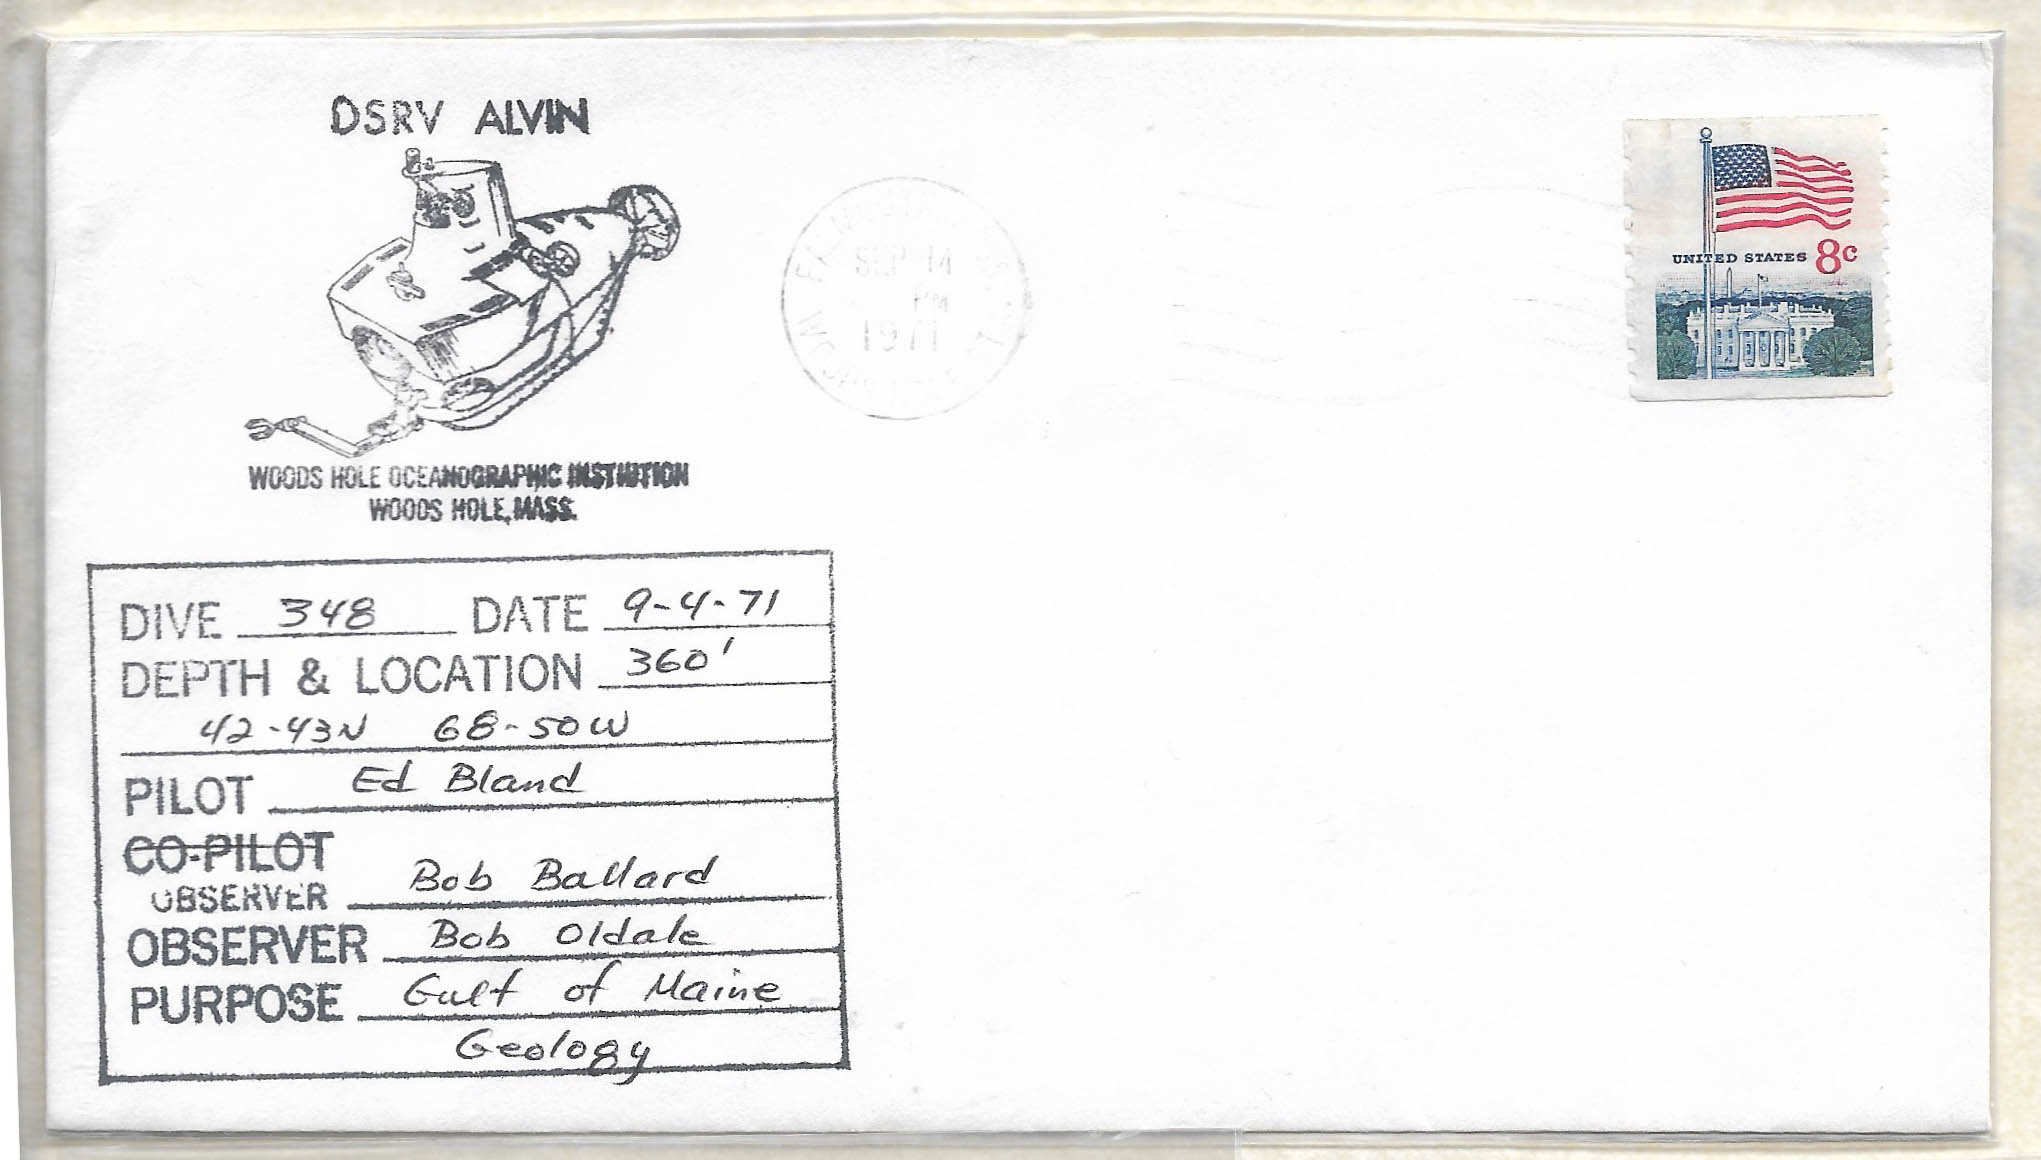 DSRV ALVIN
WOODS HOLE OCEANOGRAPHIC INSTITUTION
WOODS HOLE, MASS.
SEP 14
PM
1971
UNITED STATES 8c
DIVE 348 DATE 9-4-71
DEPTH & LOCATION 360'
42-43N 68-50W
PILOT Ed Bland
CO-PILOT
OBSERVER Bob Ballard
OBSERVER Bob Oldale
PURPOSE Gulf of Maine
Geology